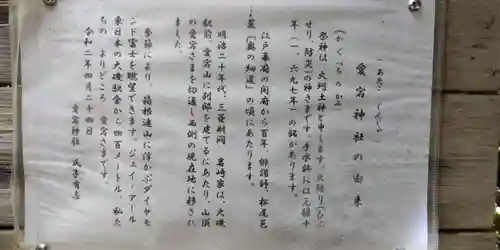 (あたご じんじゃ)
愛宕神社の由来
(かぐつちのかみ)
祭神は、火玖土神と申します。火鎮り(ひぶ
せり、防災)の神さまです。手水鉢には元禄十
年(一、六九七年)の銘があります。
江戸幕府の開府から百年、俳諧師、松尾芭
蕉「奥の細道」の頃にあたります。
明治二十年代、三菱財閥 岩崎家は、大磯
駅前、愛宕山に別邸を建てるにあたり、山頂
の愛宕さまを切通し西側の現在地に移され
ました。
季節により、箱根連山に浮かぶダイヤモ
ンド富士を眺望できます。ジェイ・アール
東日本の大磯駅舎から四百メートル、私た
ちの よりどころ 愛宕さまです。
令和二年四月二十四日
愛宕神社 氏子有志